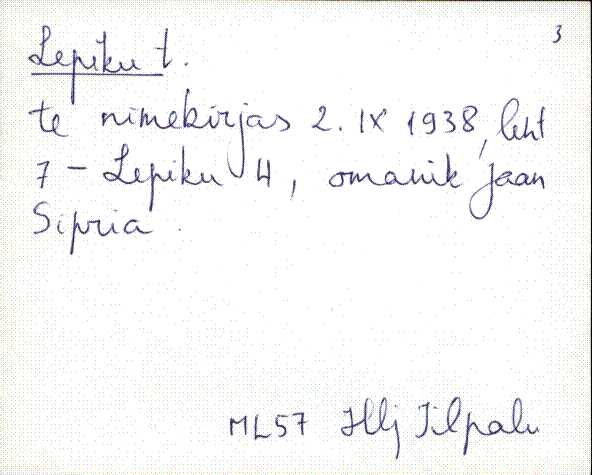 3
Lepiku t.
te nimekirjas 2. IX 1938, leht
7 - Lepiku 4, omanik Jaan
Sipria.
ML57 Illj Tilpalu